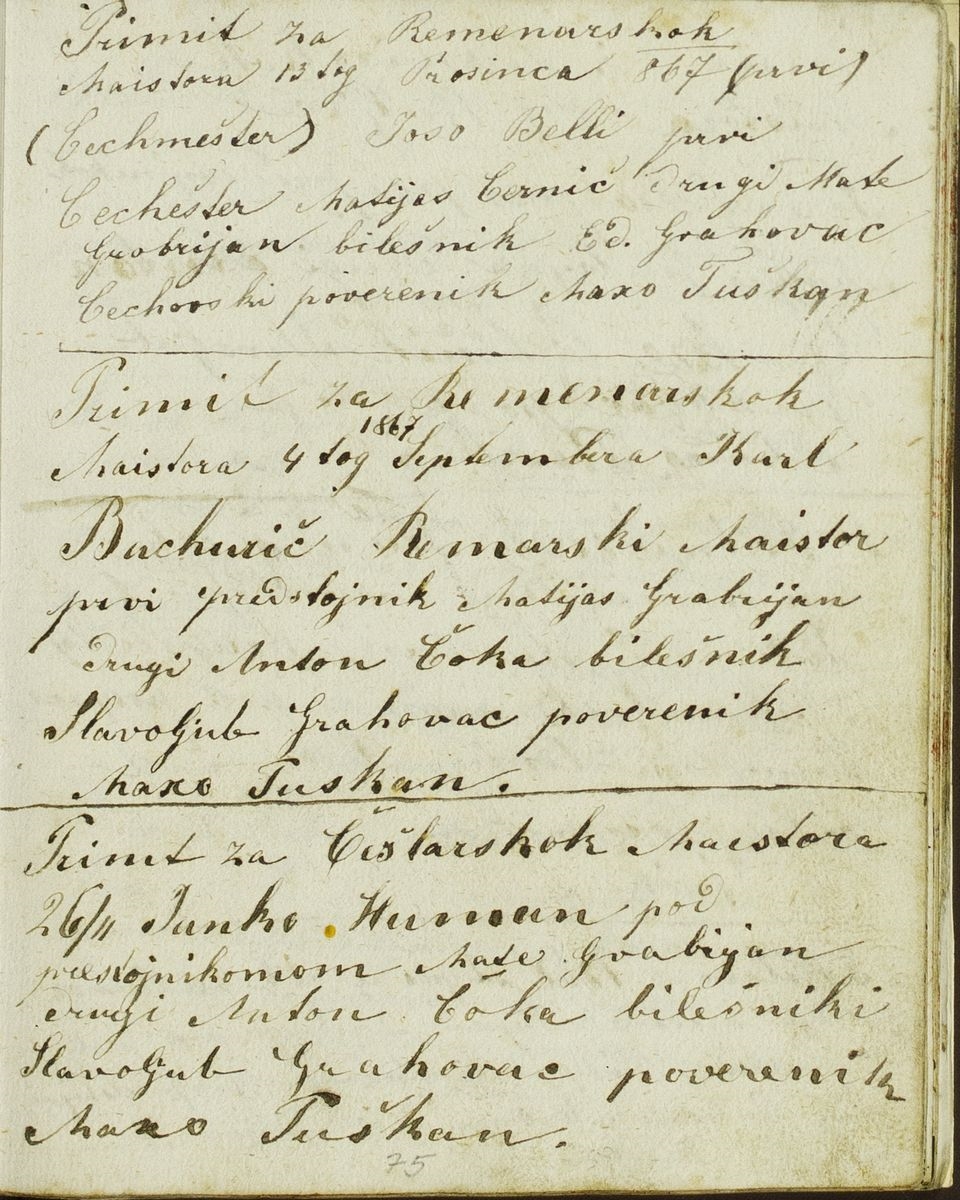 Primit za Remenarskok
Maistora 13 tog Prosinca 867 (prvi)
(Cechmešter) Joso Belli prvi
Cechešter Matijas Cernič drugi Mate
Grobrijan bilešnik Ed. Grahovac
Cechovski poverenik Maxo Tuškan
Primit za Remenarskok
1867
Maistora 4 tog Septembera Karl
Buchurič Remarski Maistor
prvi predstojnik Matijas Grabrijan
drugi Anton Čoka bilešnik
Slavoljub Grahovac poverenik
Maxo Tuskan.
Primt za Čišlarskok Maestora
26/11 Janko Human pod
prestojnikomom Mate Grabijan
drugi Anton Čoka bilešniki
Slavoljub Grahovac poverenik
Maxo Tuškan.
75